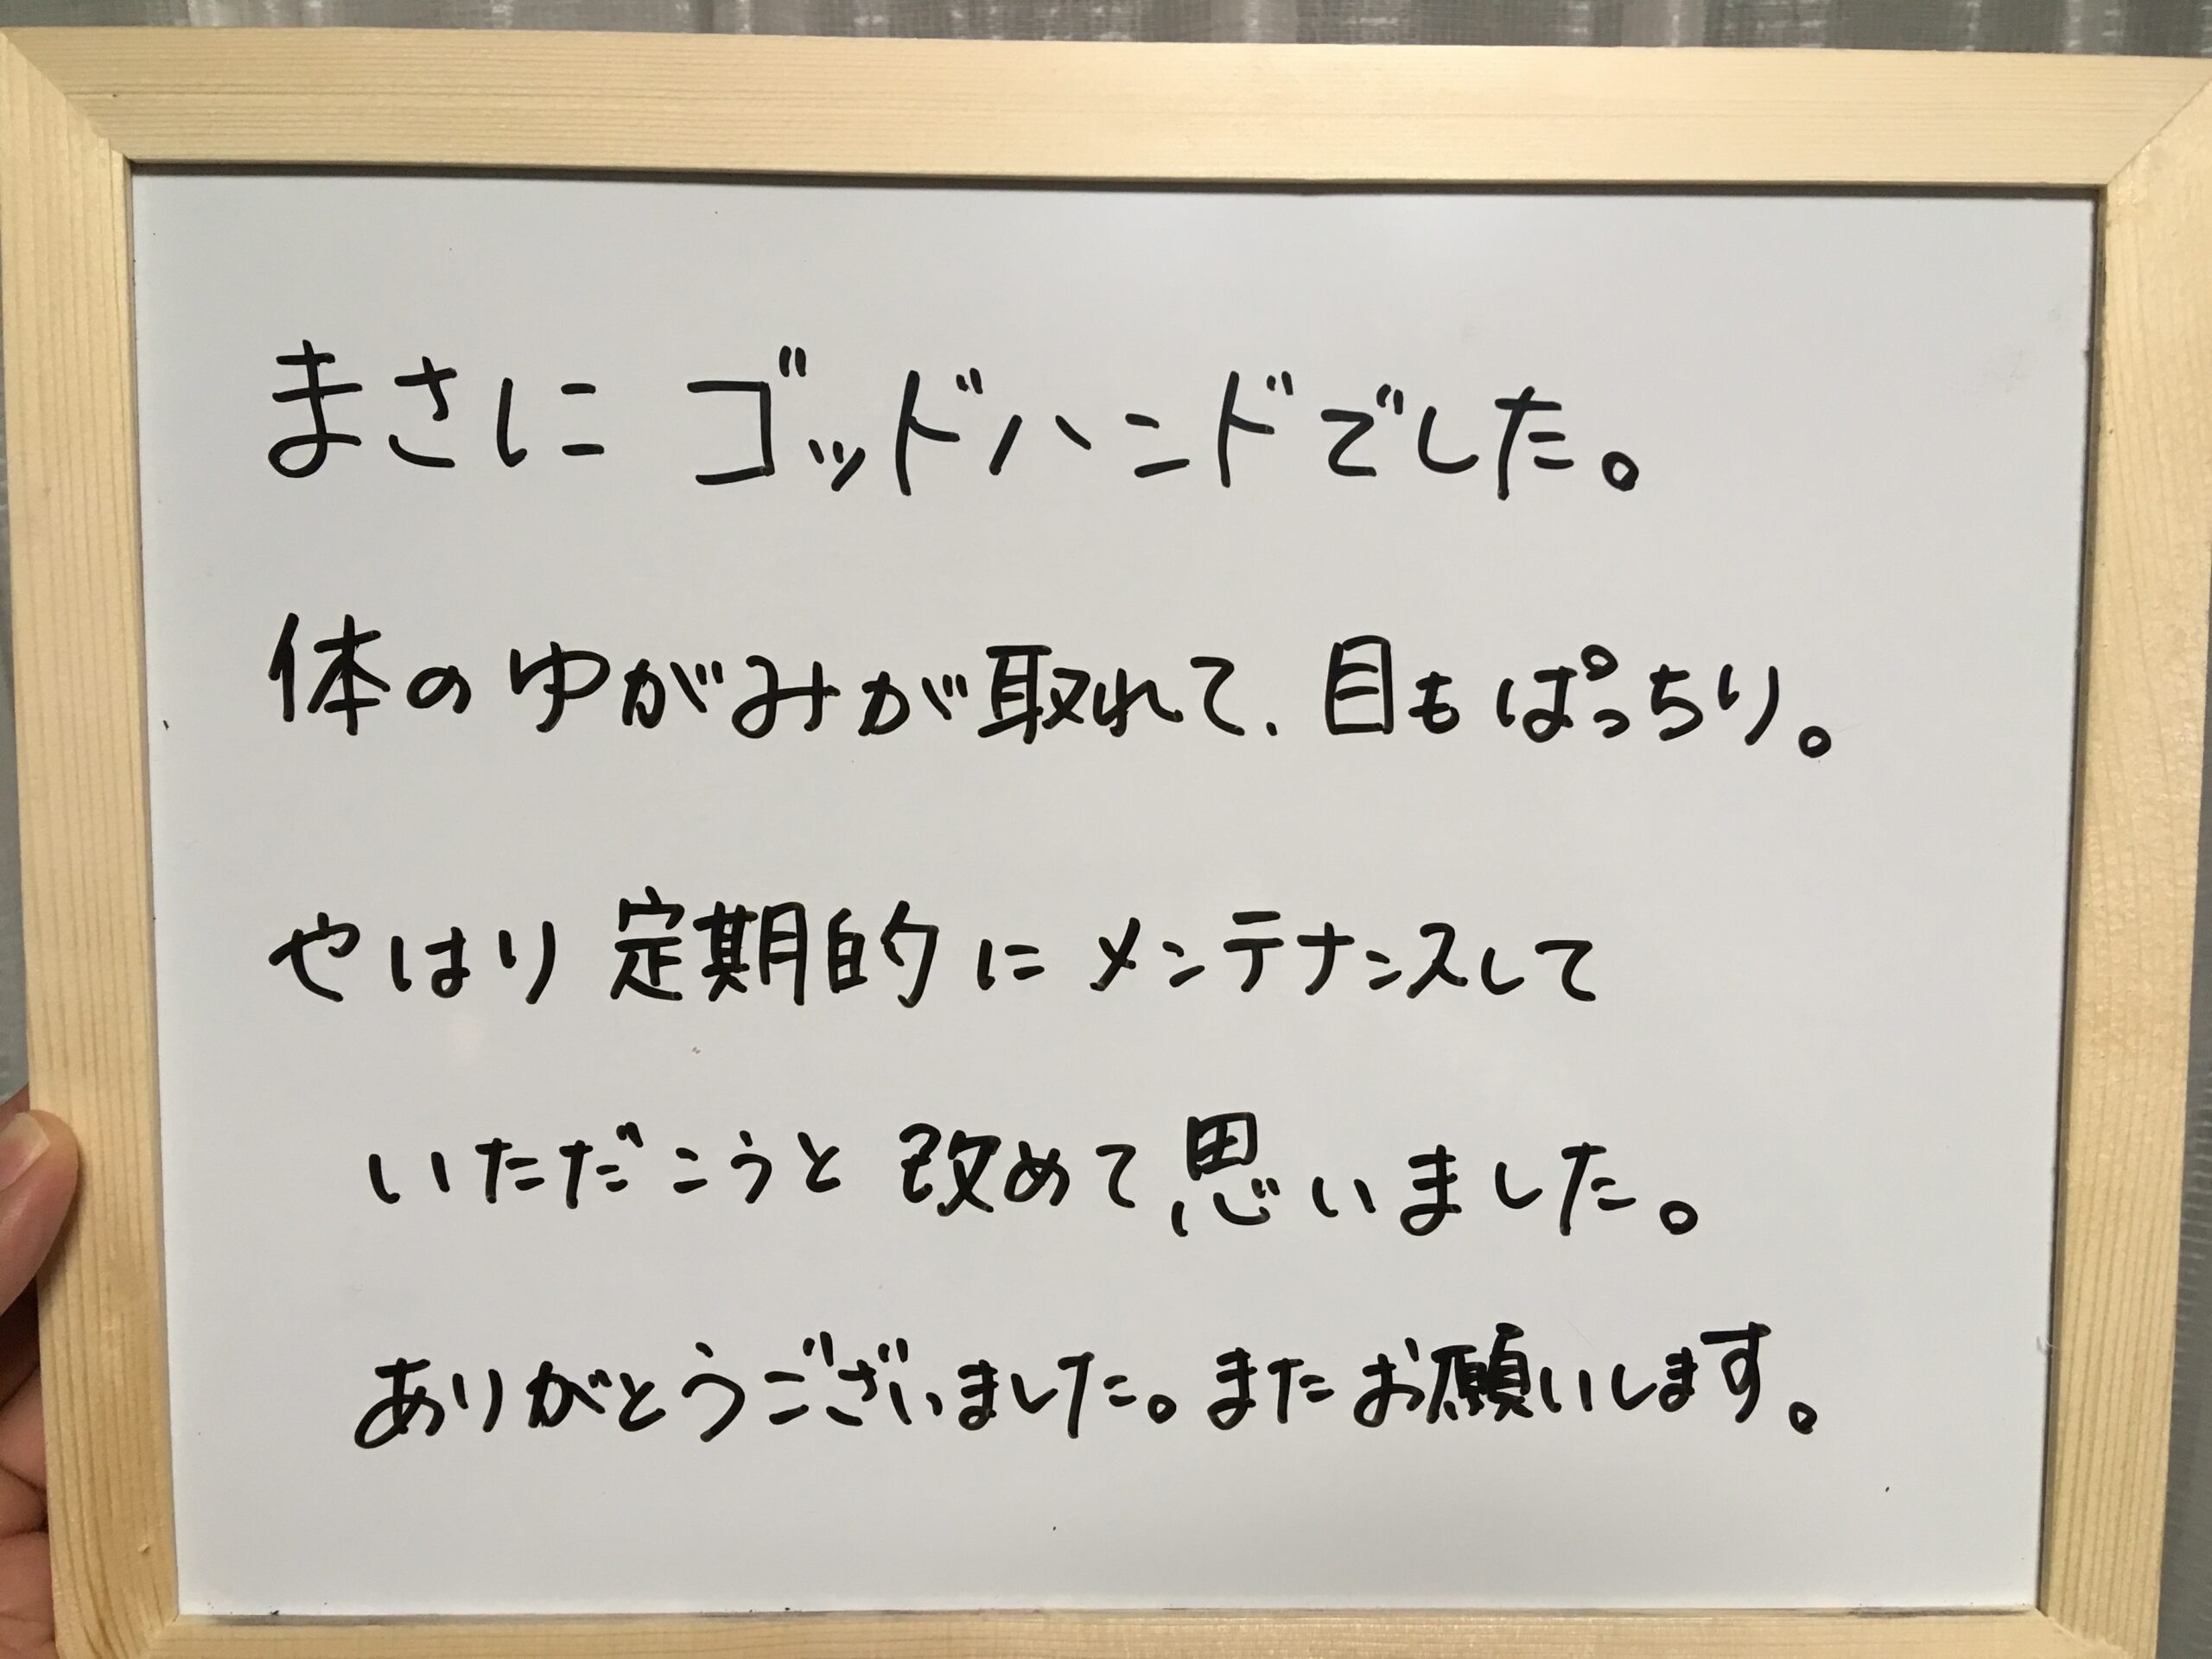 まさにゴッドハンドでした。
体のゆがみが取れて、目もぱっちり。
やはり定期的にメンテナンスして
いただこうと改めて思いました。
ありがとうございました。またお願いします。